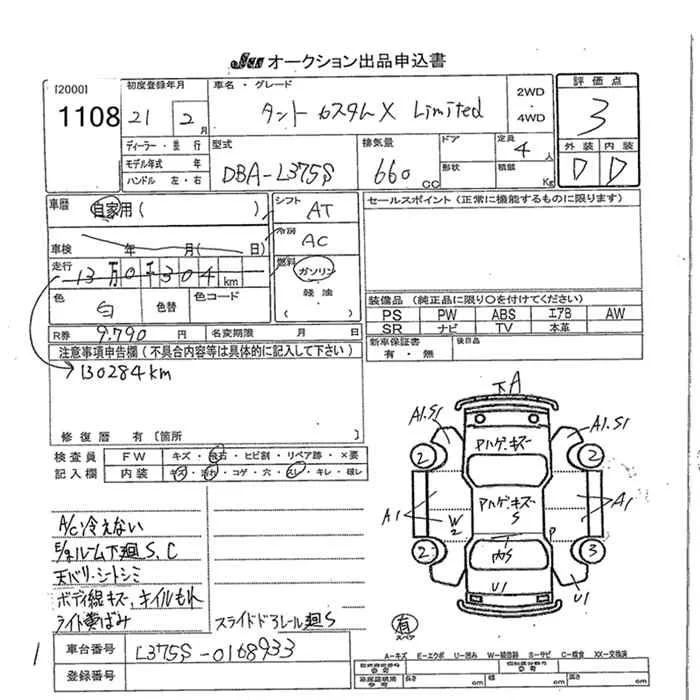 JU オークション出品申込書
[2000]
1108
初度登録年月
21 2月
車名・グレード
タント カスタムX Limited
2WD
・
4WD
評価点
3
外装 内装
D D
ディーラー・並行
モデル年式 年
ハンドル 左・右
型式
DBA-L375S
排気量
660 CC
ドア
形状
定員
4人
積載
Kg
車歴
自家用( )
車検 年 月( 日)
走行
13万0千304km
シフト
AT
冷房
AC
燃料
ガソリン
軽油
( )
色
白
色替
色コード
R券 9.790 円
名変期限 月 日
セールスポイント(正常に機能するものに限ります)
装備品(純正品に限り○を付けてください)
PS PW ABS エアB AW
SR ナビ TV 本革
新車保証書
有・無
後日品
注意事項申告欄(不具合内容等は具体的に記入して下さい)
→130284km
修復歴 有〔箇所 〕
検査員
記入欄
FW キズ・飛石・ヒビ割・リペア跡・×要
内装 キズ・汚れ・コゲ・穴・スレ・キレ・破レ
A/C冷えない
E/gルーム下廻S、C
天バリ・シートシミ
ボディ線キズ、オイルもれ
ライト黄ばみ
スライドドアレール廻S
下A
A1.S1
A1.S1
アハゲ.キズ
2
2
アハゲ.キズ
S
A1
A1
W
2
P
内S
2
3
U1
U1
有
スペア
車台番号
L375S-0168933
登録番号
A-キズ E-エクボ U-凹み W-補修跡 S-サビ C-腐食 XX-交換済
長さ cm
cm
cm